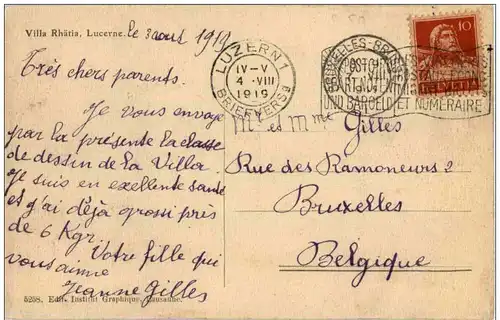 Villa Rhätia, Lucerne. le 3 aout 1919
Très chers parents.
Je vous envoye
par la présente la classe
de dessin de la Villa.
Je suis en exellente santé
et j'ai déjà grossi près
de 6 Kgr.
Votre fille qui
vous aime
Jeanne Gilles
5258. Edit. Institut Graphique, Lausanne.
LUZERN 1
IV-V
4 VIII
1919
BRIEFVERS
10
HELVETIA
UND BARGELD ET NUMÉRAIRE
Mr et Mme Gilles
Rue des Ramoneurs 2
Bruxelles
Belgique